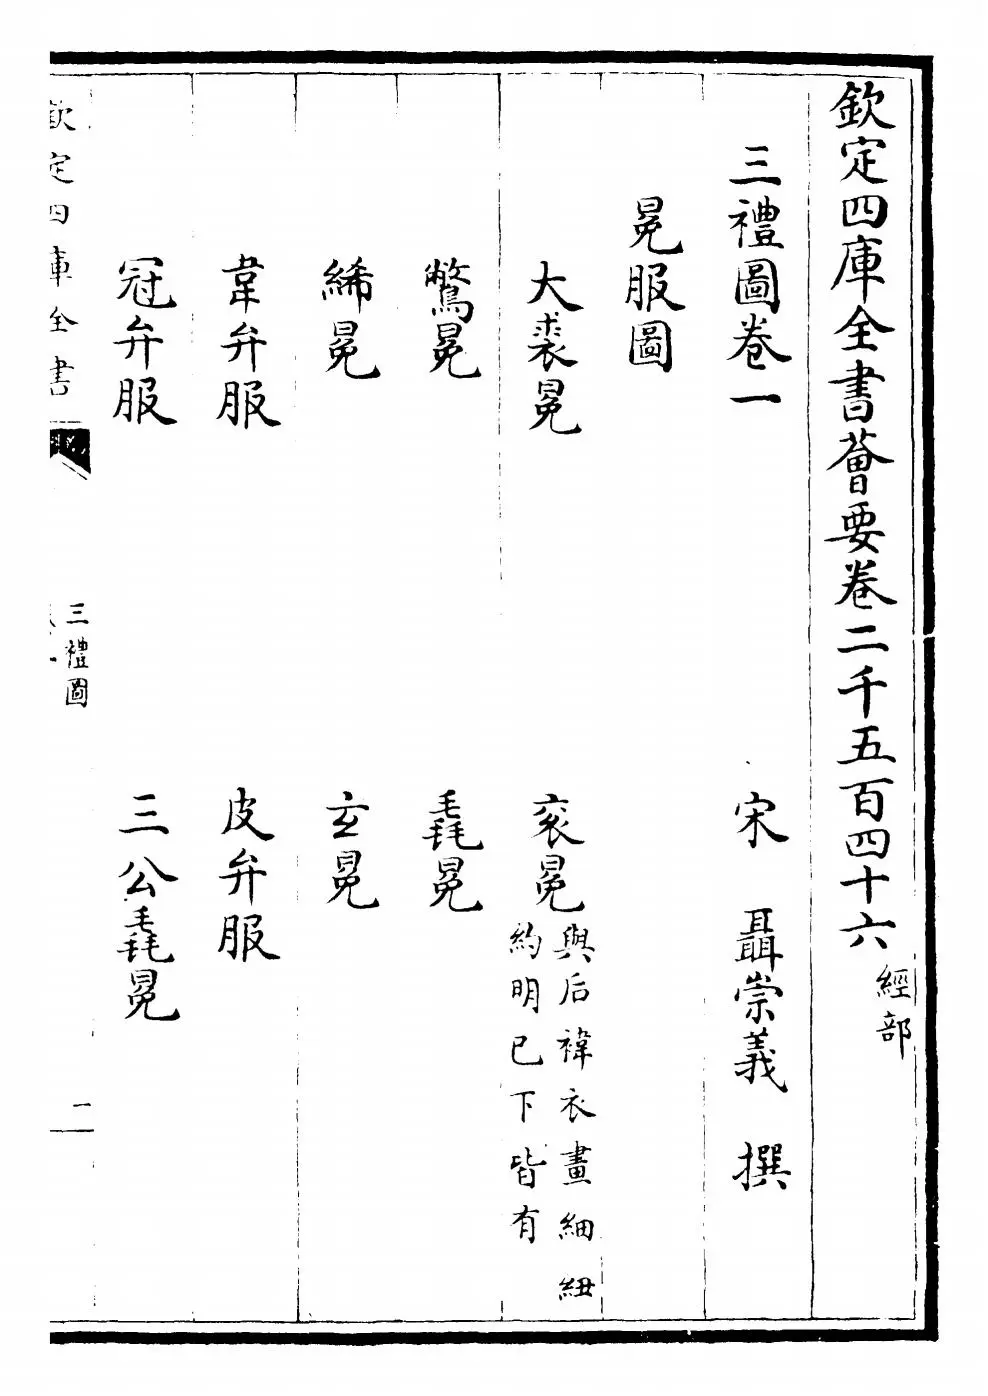 欽定四庫全書薈要卷二千五百四十六 經部
三禮圖卷一 宋 聶崇義 撰
冕服圖
大裘冕 衮冕 與后褘衣畫細紐
約明已下皆有
鷩冕 毳冕
絺冕 玄冕
韋弁服 皮弁服
冠弁服 三公毳冕
欽定四庫全書 三禮圖
一